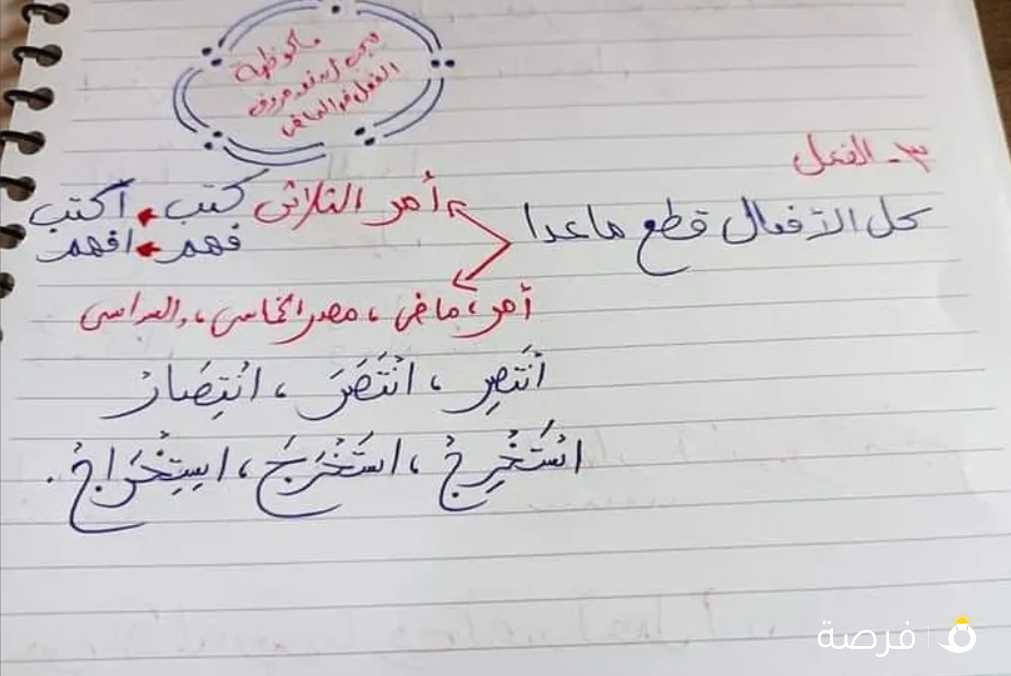 ملحوظة
يجب أن نعد حروف
الفعل في الماضي
٣- الفعل
كل الأفعال قطع ماعدا
أمر الثلاثى كتب اكتب
فهم افهم
أمر، ماضى، مصدر الخماسى، والسداسى
انْتَصِر، انْتَصَرَ، انْتِصَارْ
اسْتَخْرِجْ، اسْتَخْرَجَ، اسِتِخْرَاجْ.
فرصة